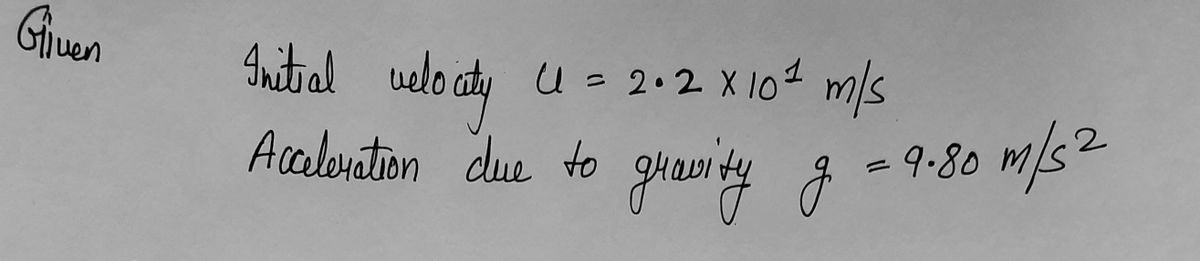 Given
Initial velocity u = 2.2 X 10¹ m/s
Acceleration due to gravity g = 9.80 m/s²